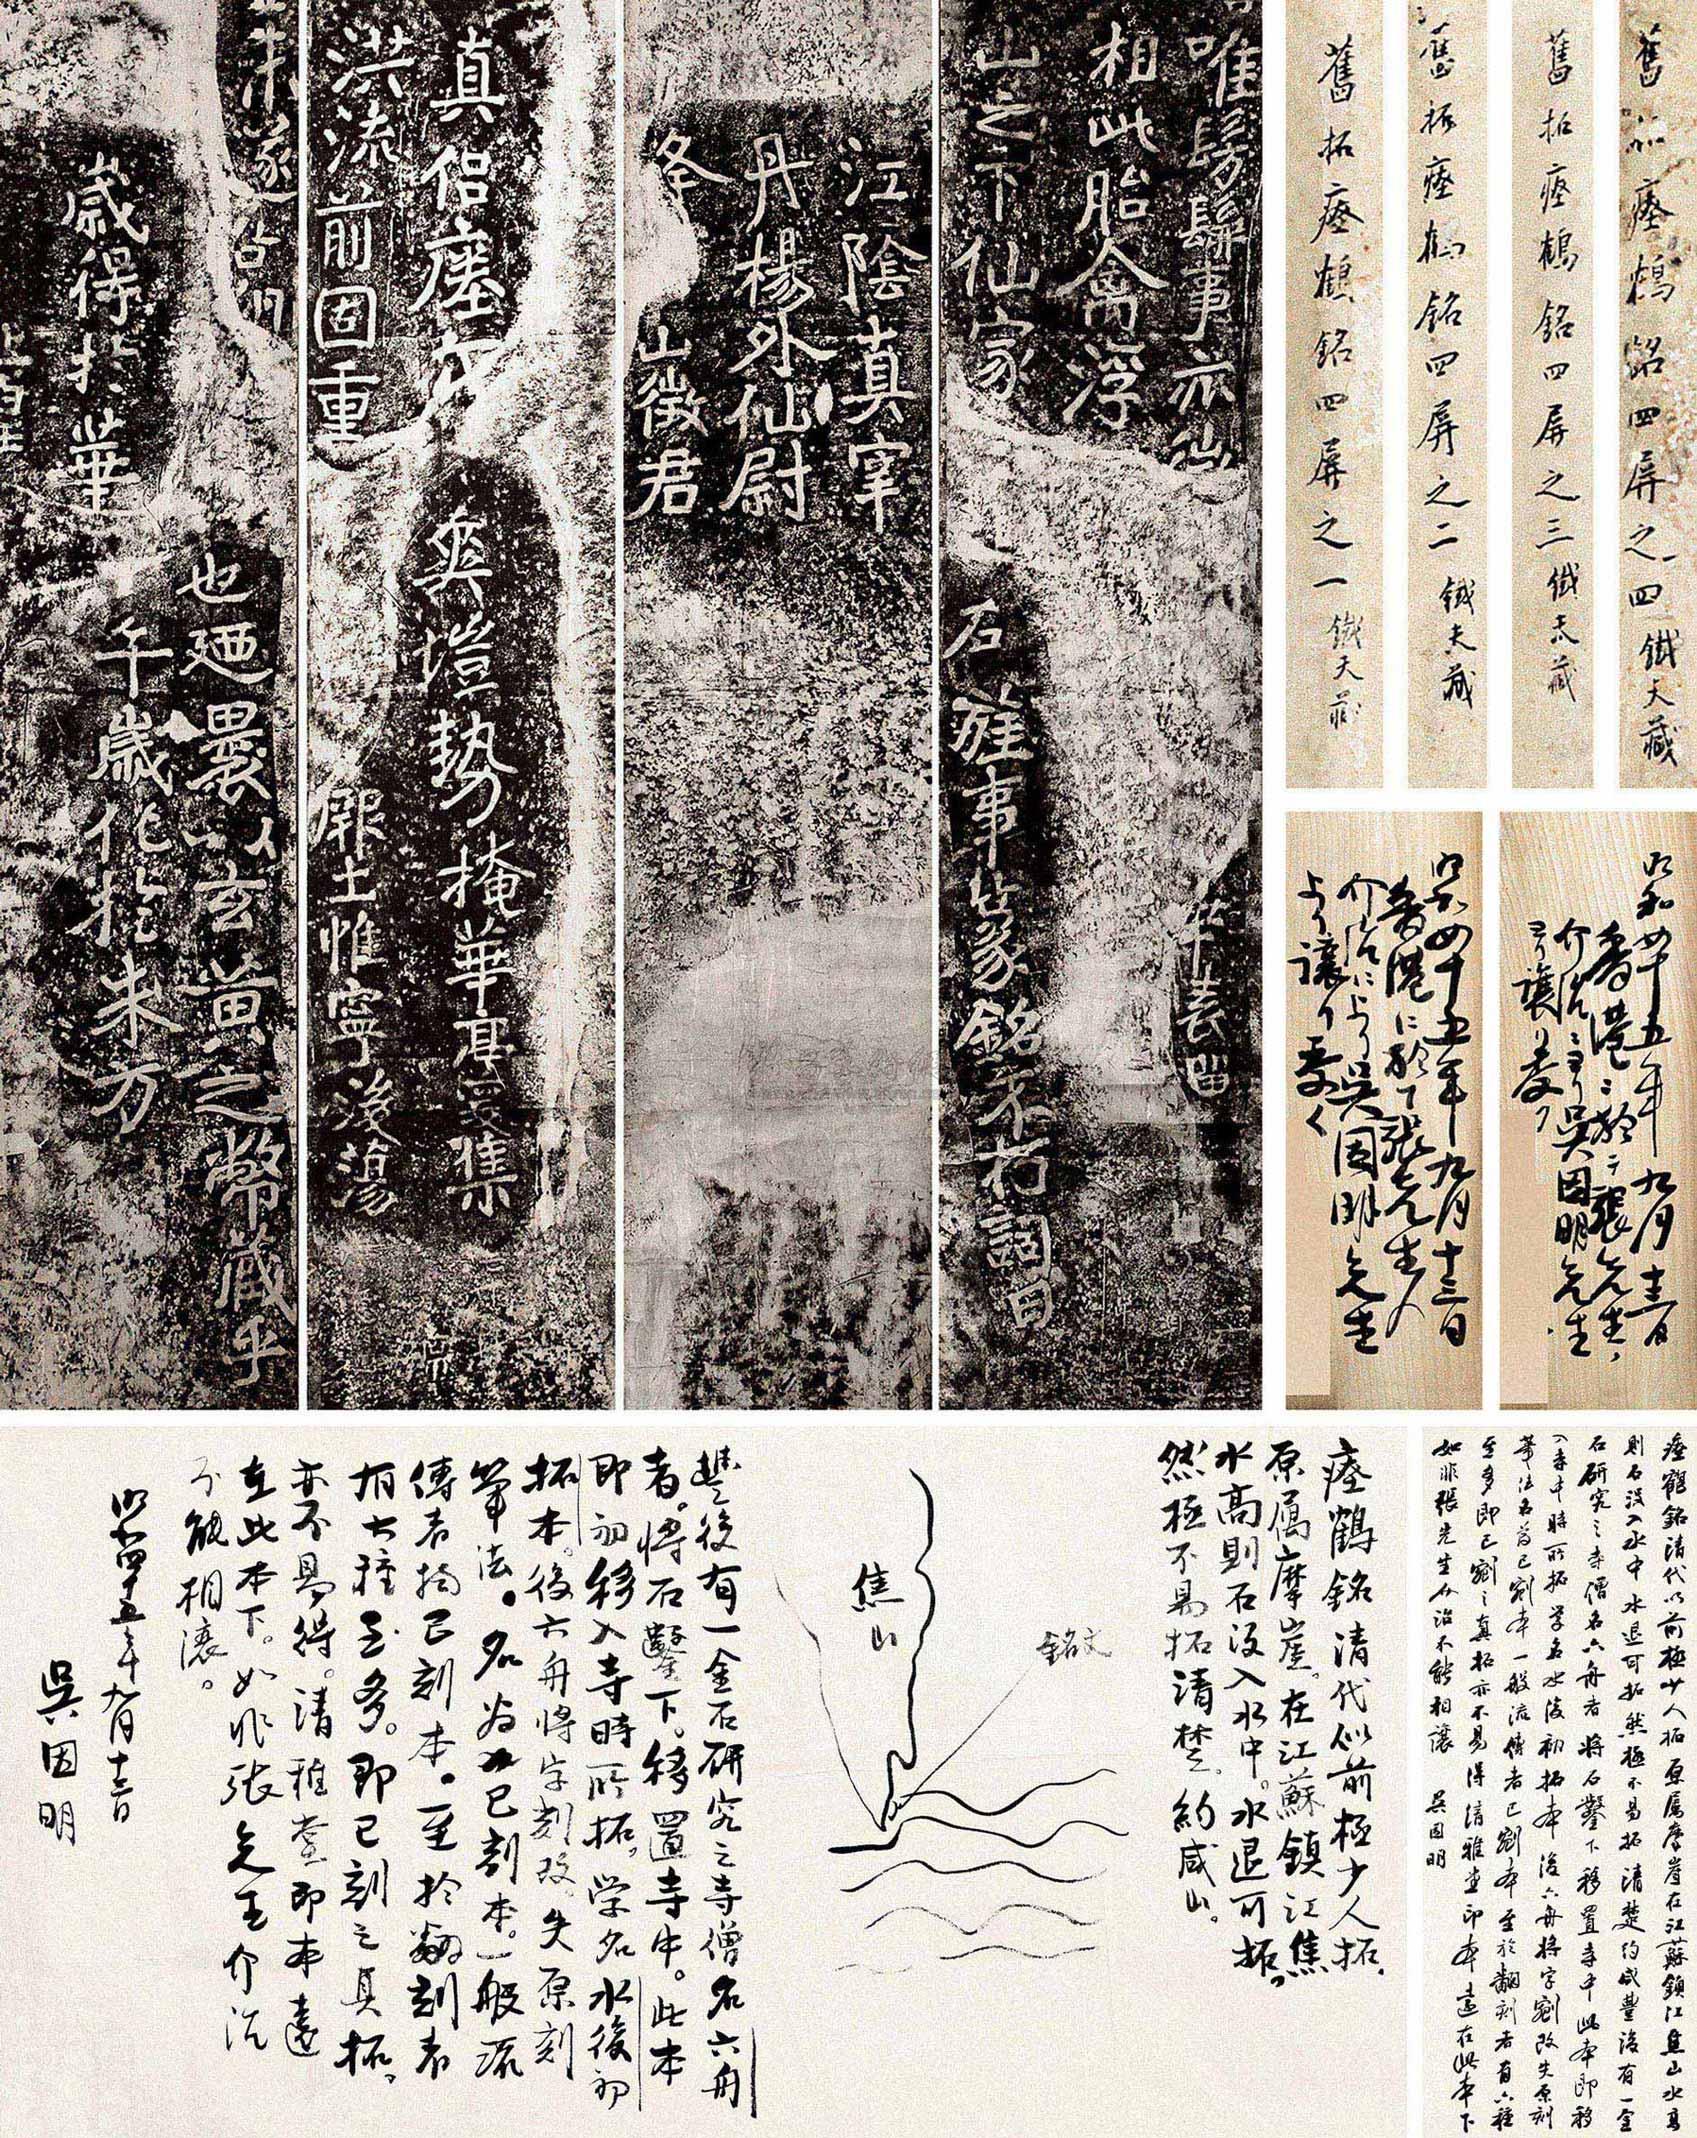 也迺裹以玄黄之幣藏乎
歲得於華
午歲化於朱方
真侶瘞尔
爽塏勢掩華亭爰集
洪流前固重
厥土惟寧後蕩
江陰真宰
丹楊外仙尉
夆
山徵君
唯髣髴事亦
相此胎禽浮
山之下仙家
石旌事篆銘不朽詞曰
舊拓瘞鶴銘四屏之一 鐵夫藏
舊拓瘞鶴銘四屏之二 鐵夫藏
舊拓瘞鶴銘四屏之三 鐵夫藏
舊拓瘞鶴銘四屏之四 鐵夫藏
昭和四十五年九月十三日
香港に於て張先生ノ
介紹により吳因明先生
より讓り受く
昭和四十五年九月十三日
香港ニ於テ張先生ノ
介紹ニヨリ吳因明先生
ヨリ讓リ受ク
瘞鶴銘清代以前極少人拓，
原屬摩崖。在江蘇鎮江焦
山。水高則石沒入水中。水退可拓。
然極不易拓清楚。約咸
焦山
銘文
豐後有一金石研究之寺僧名六舟
者。將石鑿下。移置寺中。此本
即初移入寺時所拓。学名水後初
拓本。後六舟將字剜改。失原刻
筆法。名為已剜本。一般流
傳者均已剜本。至於翻刻者
有六種至多。即已剜之真拓。
亦不易得。清雅堂印本遠
在此本下。如非張先生介紹
不能相讓。
昭和四十五年九月十三日
吳因明
瘞鶴銘清代以前極少人拓原屬摩崖在江蘇鎮江焦山水高
則石沒入水中水退可拓然極不易拓清楚約咸豐後有一金
石研究之寺僧名六舟者將石鑿下移置寺中此本即移
入寺中時所拓学名水後初拓本後六舟將字剜改失原刻
筆法名為已剜本一般流傳者已剜本至於翻刻者有六種
至多即已剜之真拓亦不易得清雅堂印本遠在此本下
如非張先生介紹不能相讓 吳因明